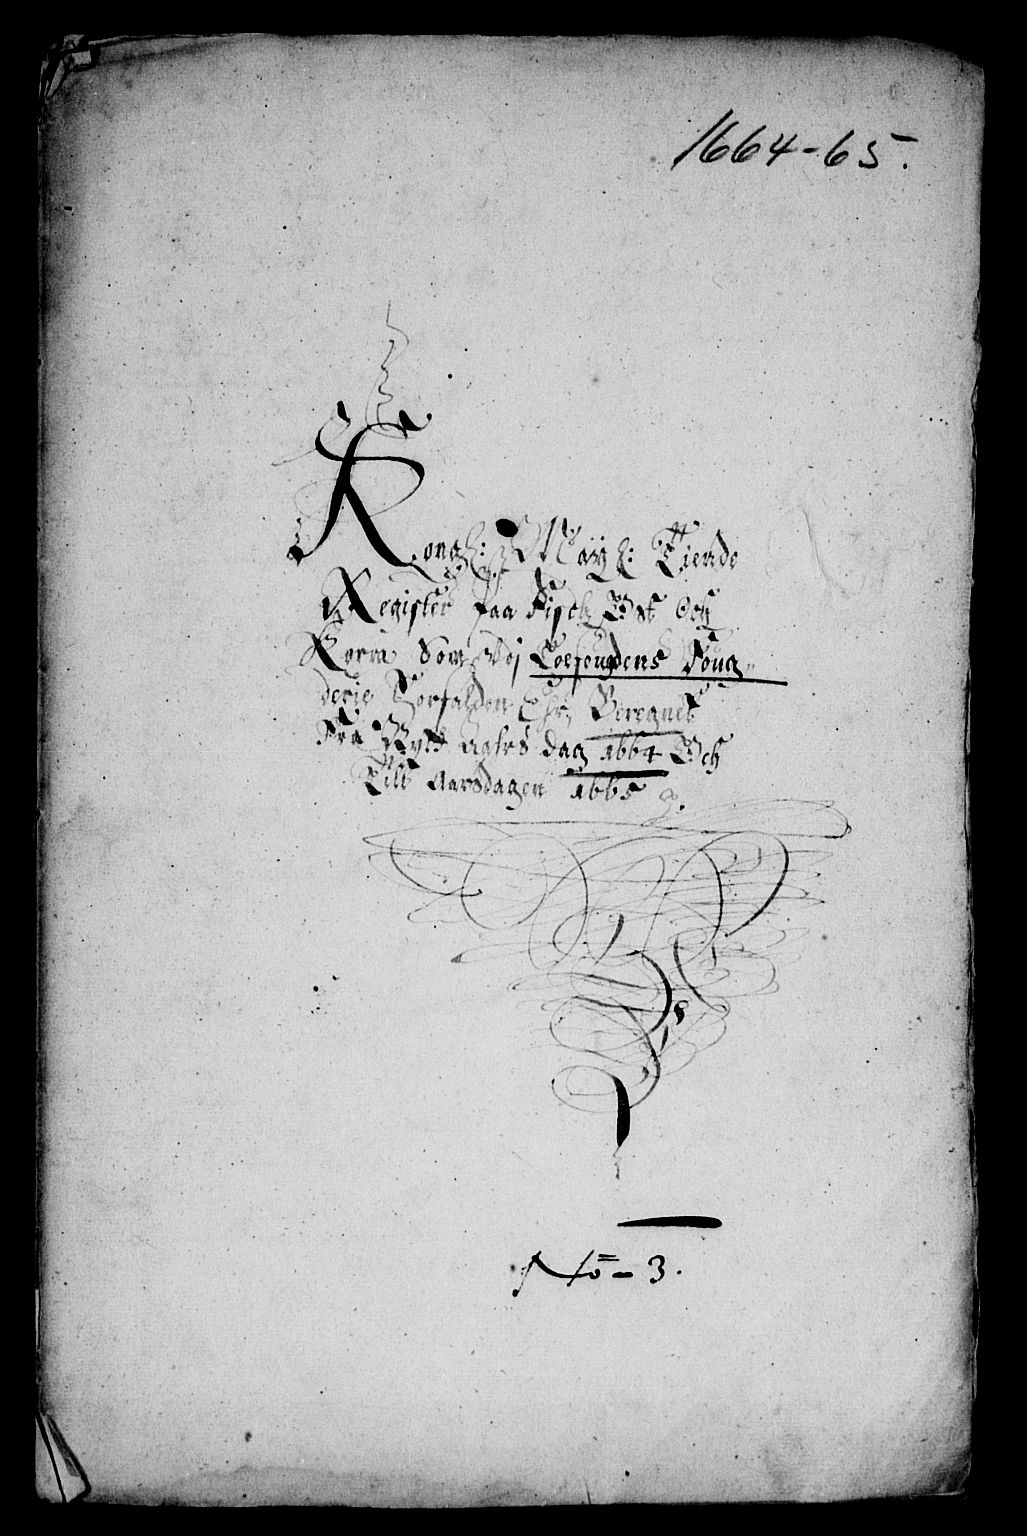 1664-65.
Kongl: Mayt: Tiende
Register paa Fisch Ost Och
Korn Som Vdj Loffoudens Foug-
derie Forfalden Ehr, Beregnet
Fra Nytt Aahrs dag 1664 Och
Till Aarsdagen 1665
No= 3.